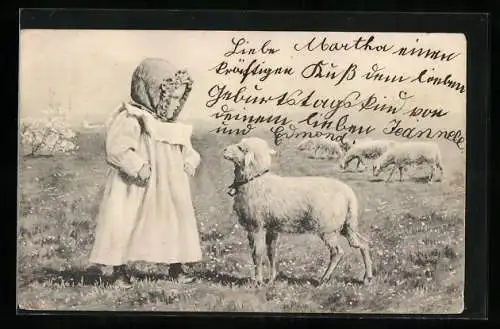 Liebe Martha einen
kräftigen Kuß dem lieben
Geburtstagskind von
deinem lieben Jeannette
und Edmond